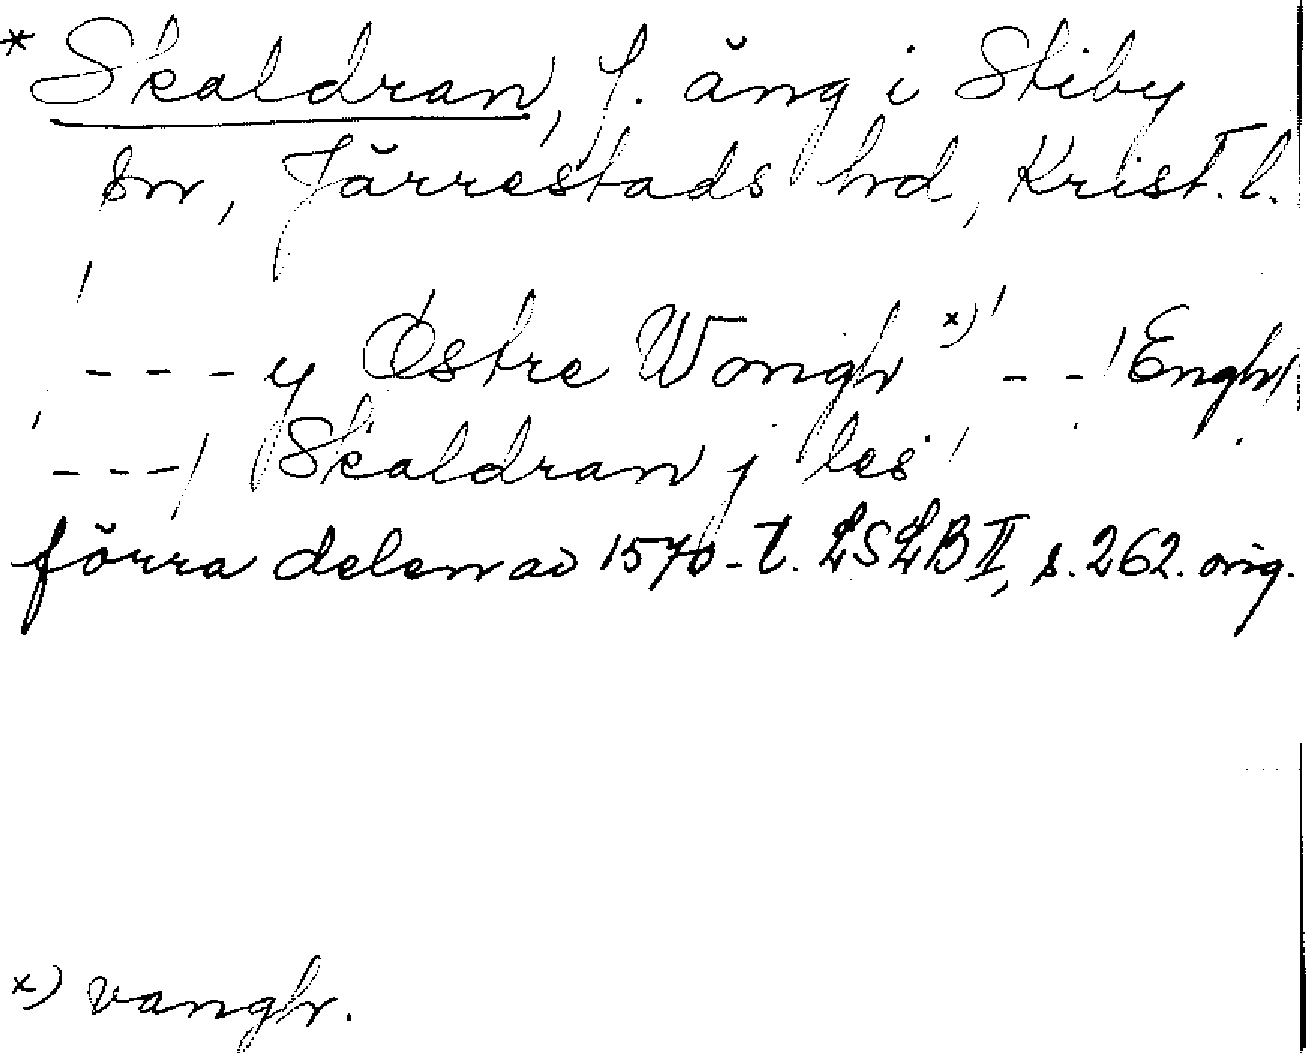 * Skaldran, f. äng i Stiby
sn, Järrestads hd, Krist. l.
'
- - - y Østre Wongh x)' - - 'Engh
- - -' 'Skaldran j læs'
förra delen av 1570-t. LSLB II, s. 262. orig.
x) vangh.